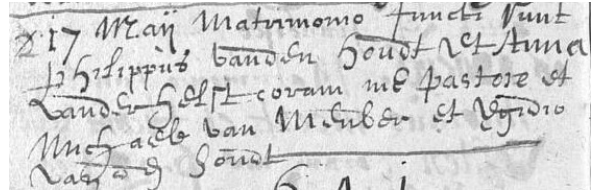 17 Maij Matrimonio Juncti sunt
Philippus vanden houdt et Anna
vander helst coram me pastore et
Michaele van Meuber et Egidio
vanden houdt